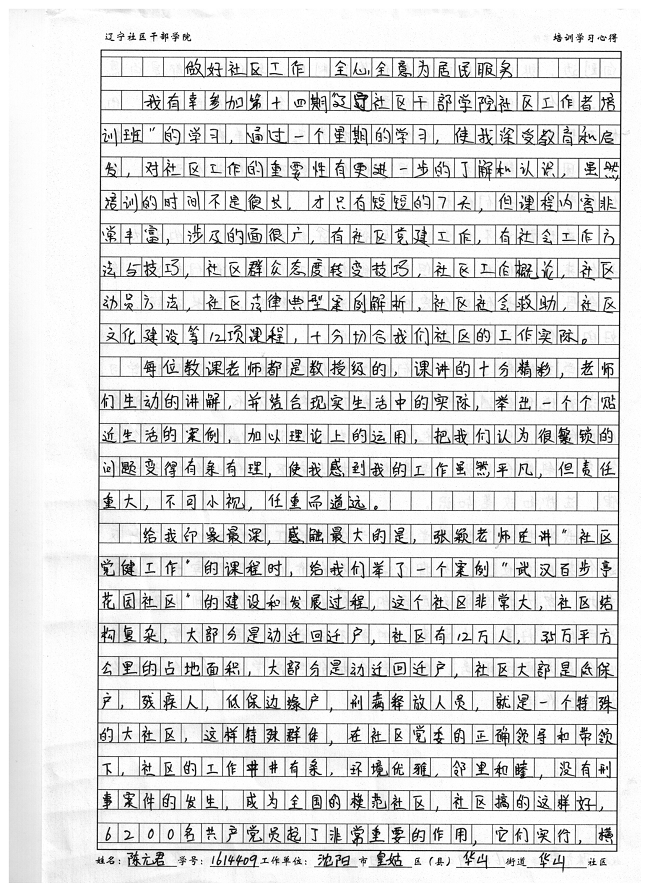 辽宁社区干部学院 培训学习心得
做好社区工作 全心全意为居民服务
我有幸参加第十四期"辽宁社区干部学院社区工作者培
训班"的学习,通过一个星期的学习,使我深受教育和启
发,对社区工作的重要性有更进一步的了解和认识,虽然
培训的时间不是很长,才只有短短的7天,但课程内容非
常丰富,涉及的面很广,有社区党建工作,有社会工作方
法与技巧,社区群众态度转变技巧,社区工作概论,社区
动员方法,社区法律典型案例解析,社区社会救助,社区
文化建设等12项课程,十分切合我们社区的工作实际。
每位教课老师都是教授级的,课讲的十分精彩,老师
们生动的讲解,并结合现实生活中的实际,举出一个个贴
近生活的案例,加以理论上的运用,把我们认为很繁锁的
问题变得有条有理,使我感到我的工作虽然平凡,但责任
重大,不可小视,任重而道远。
给我印象最深,感触最大的是,张颖老师在讲"社区
党健工作"的课程时,给我们举了一个案例"武汉百步亭
花园社区"的建设和发展过程,这个社区非常大,社区结
构复杂,大部分是动迁回迁户,社区有12万人,35万平方
公里的占地面积,大部分是动迁回迁户,社区大部是低保
户,残疾人,低保边缘户,刑满释放人员,就是一个特殊
的大社区,这样特殊群体,在社区党委的正确领导和带领
下,社区的工作井井有条,环境优雅,邻里和睦,没有刑
事案件的发生,成为全国的模范社区,社区搞的这样好,
6200名共产党员起了非常重要的作用,它们实行,横
姓名:陈元君 学号:1614409 工作单位:沈阳市皇姑区(县)华山街道华山社区